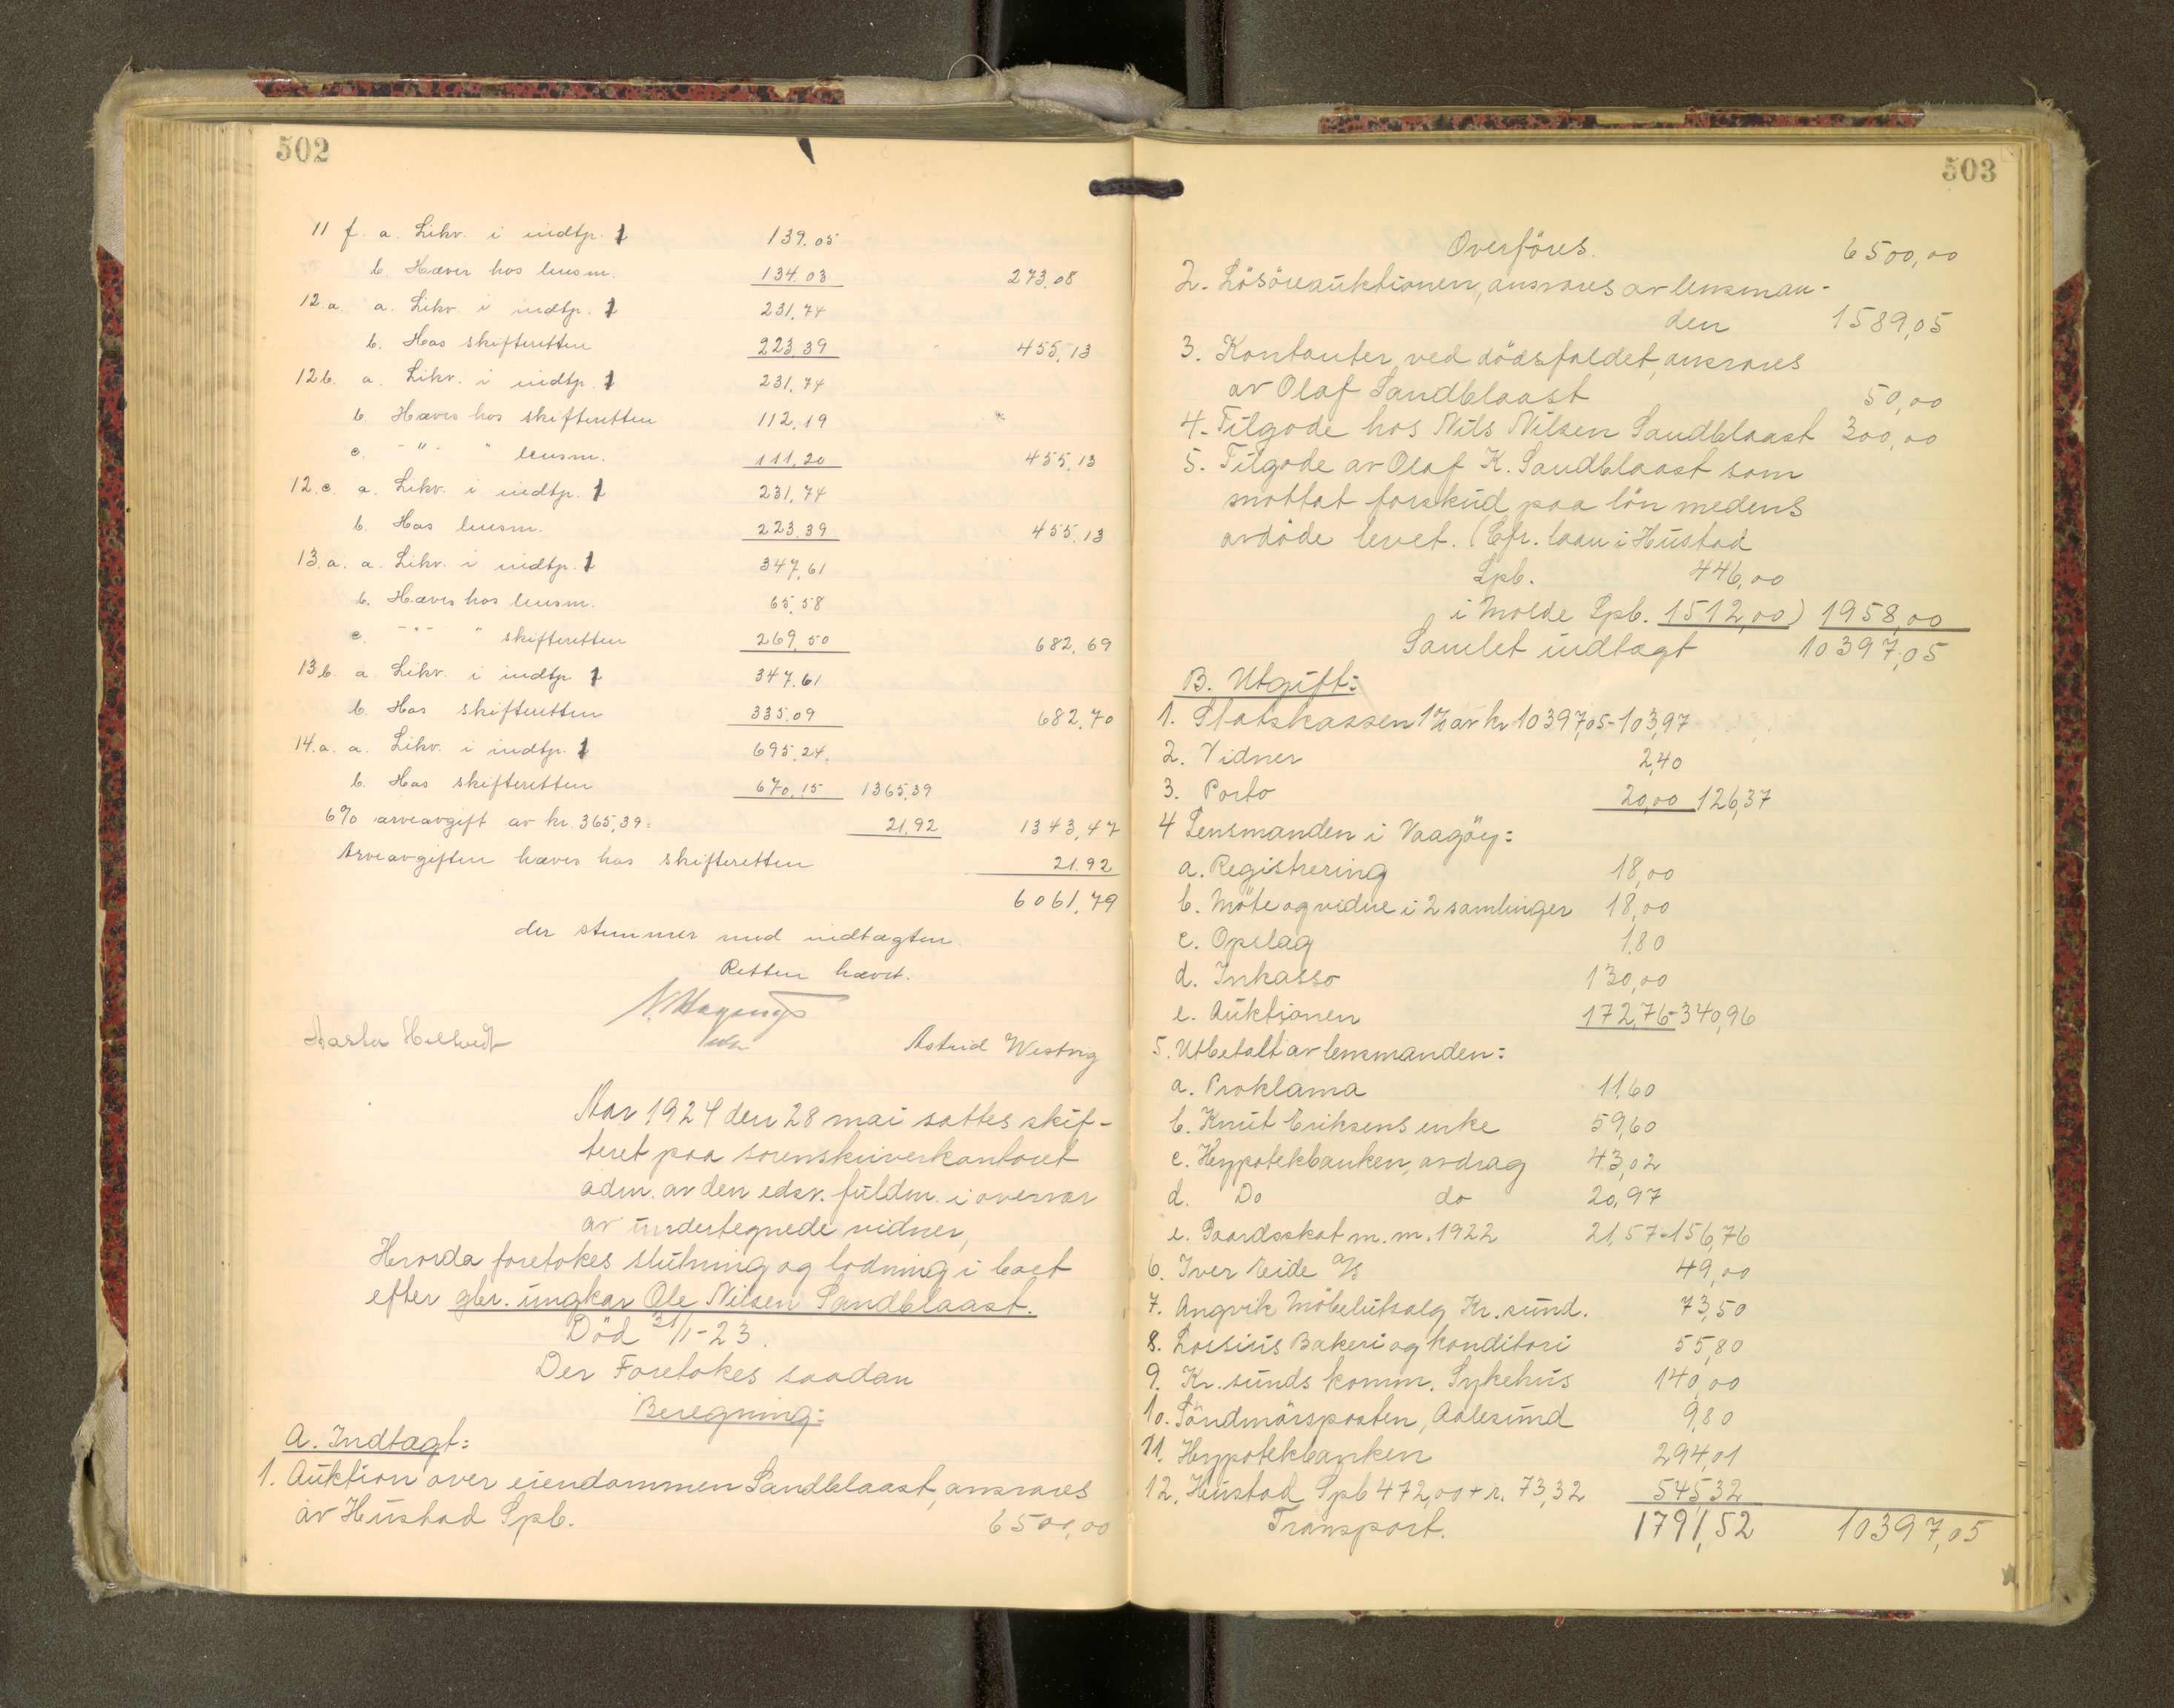 502
11 f. a. Likv. i indtp. 1 139.05
b. Hæver hos lensm. 134.03 273.08
12.a. a. Likv. i indtp. 1 231.74
b. Hos skifteretten 223.39 455.13
12b. a. Likv. i indtp. 1 231.74
b. Hæves hos skifteretten 112.19
c. -"- " lensm. 111.20 455.13
12.c. a. Likv. i indtp. 1 231.74
b. Hos lensm. 223.39 455.13
13.a. a. Likv. i indtp. 1 347.61
b. Hæves hos lensm. 65.58
c. -"- " skifteretten 269,50 682.69
13b. a. Likv. i indtp. 1 347.61
b. Hos skifteretten 335.09 682.70
14.a. a. Likv. i indtp. 1 695.24.
b. Hos skifteretten 670.15 1365.39
6% arveavgift av kr. 365,39= 21.92 1343,47
Arveavgiften hæves hos skifteretten 21.92
6061.79
der stemmer med indtægten
Retten hævet.
Astrid Westvig
Aar 1924 den 28 mai sattes skif-
teret paa sorenskriverkontoret
adm. av den edsv. fuldm. i overvær
av undertegnede vidner,
Hvorda foretokes slutning og lodning i boet
efter gbr. ungkar Ole Nilsen Sandblaast.
Död 31/1-23.
Der Foretokes saadan
Beregning:
A. Indtægt:
1. Auktion over eiendommen Sandblaast, ansvares
av Hustad Spb. 6500,00
503
Overföres. 6500,00
2. Lösöreauktionen, ansvares av lensman-
den 1589,05
3. Kontanter ved dödsfaldet, ansvares
av Olaf Sandblaast 50,00
4. Tilgode hos Nils Nilsen Sandblaast 300,00
5. Tilgode av Olaf K. Sandblaast som
mottat forskud paa lön medens
avdöde levet. (Cfr. laan i Hustad
Spb. 446,00
i Molde Spb. 1512,00) 1958,00
Samlet indtægt 10397,05
B. Utgift:
1. Statskassen 1% av kr 10397,05- 103,97
2. Vidner 2,40
3. Porto 20,00 126,37
4 Lensmanden i Vaagöy:
a. Registrering 18,00
b. Möte og vidne i 2 samlinger 18,00
c. Opslag 1,80
d. Inkasso 130,00
e. Auktionen 172,76- 340,96
5. Utbetalt av lensmanden:
a. Proklama 11,60
b. Knut Eriksens enke 59,60
c. Hypotekbanken, avdrag 43,02
d. Do do 20,97
e. Gaardsskat m.m. 1922 21,57- 156,76
6. Iver Eide A/S 49,00
7. Angvik Möbelutsalg Kr.sund. 73,50
8. Lossius Bakeri og konditori 55,80
9. Kr.sunds komm. Sykehus 140,00
10. Söndmörsposten, Aalesund 9,80
11. Hypotekbanken 294,01
12. Hustad Spb 472,00 + r. 73,32 545,32
Transport. 1791,52 10397,05